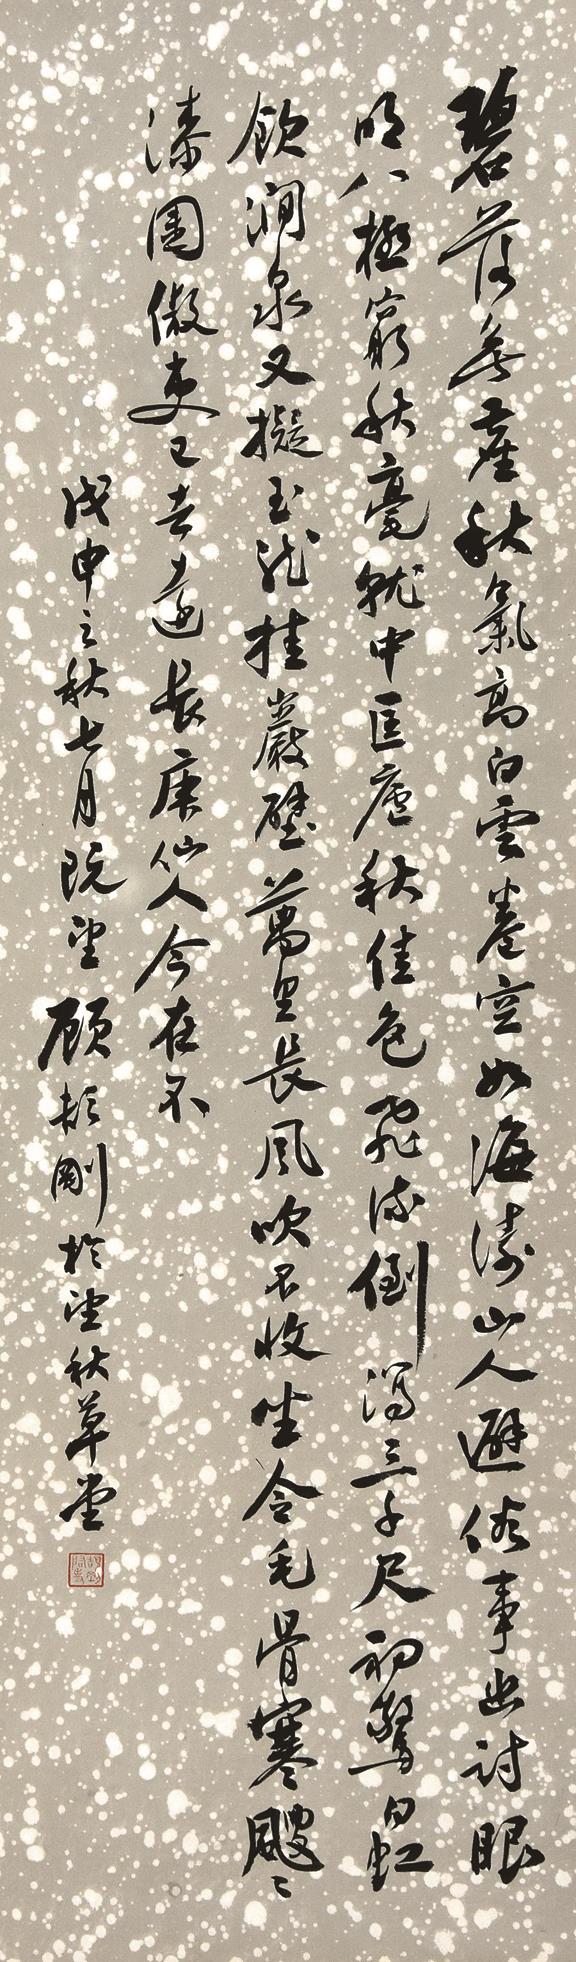 碧落無塵秋氣高白雲卷空如海濤山人避俗事出討眼
明八極窮秋毫就中匡廬秋佳色飛流倒瀉三千尺初驚白虹
飲澗泉又擬玉龍挂巖壁萬里長風吹不收坐令毛骨寒颼〻
漆園傲吏已去遠長庚仙人今在不
戊申之秋七月既望顧彬剛於望秋草堂